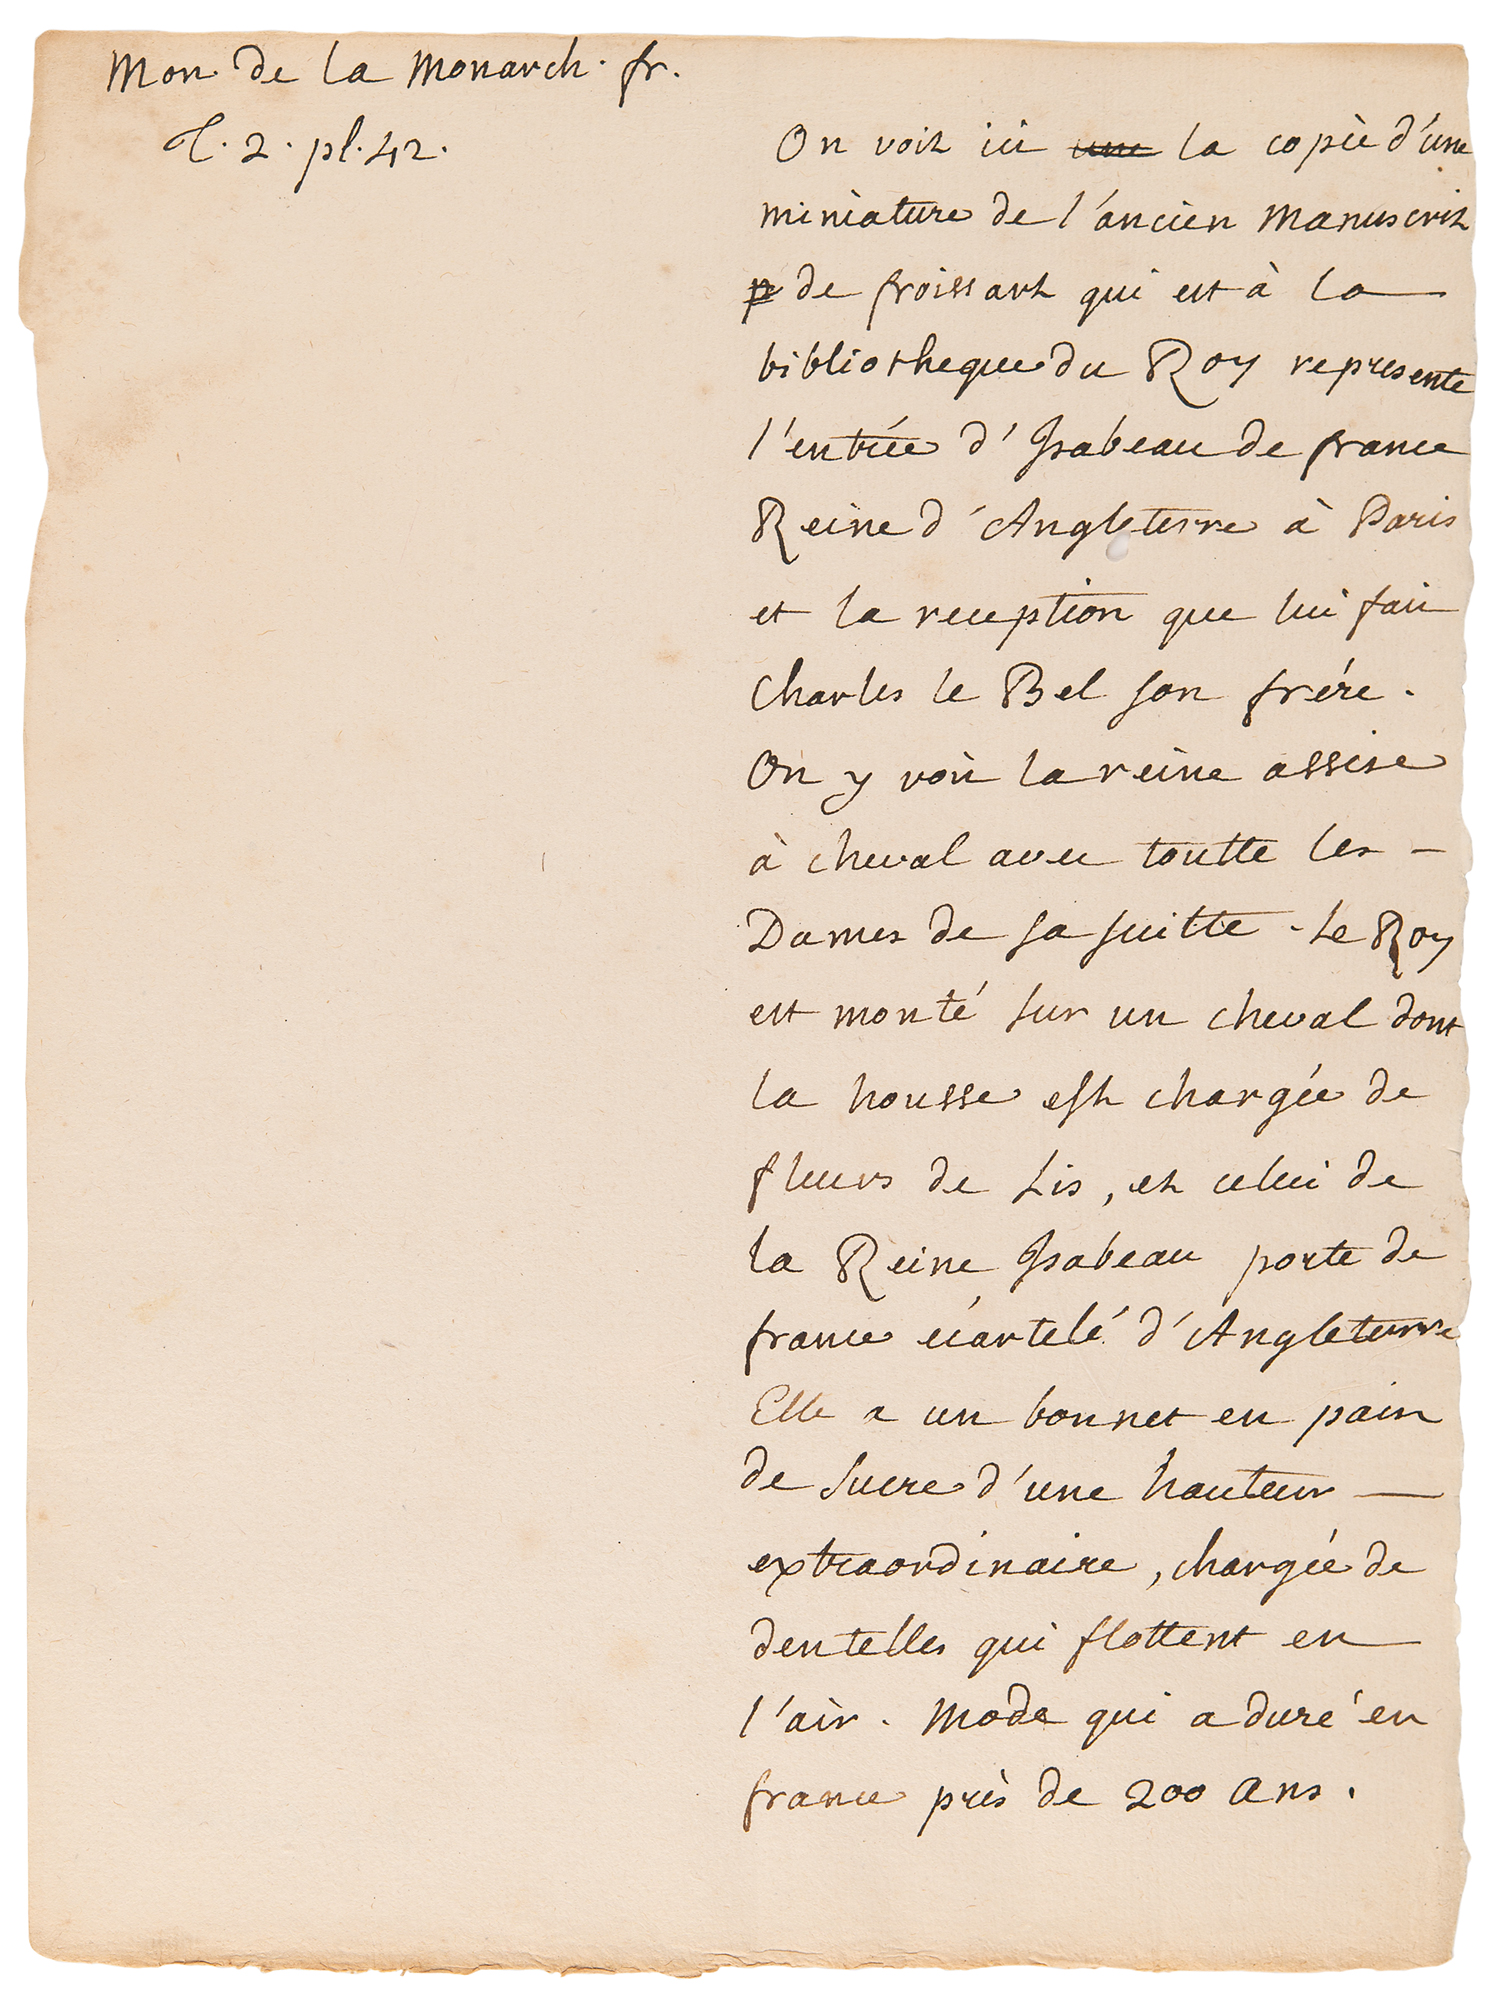 Mon. de la Monarch. fr.
T. 2. pl. 42.
On voit ici une la copie d'une
miniature de l'ancien Manuscrit
p de froissart qui est à la
bibliotheque du Roy represente
l'entrée d'Isabeau de france
Reine d'Angleterre à Paris
et la reception que lui fait
Charles le Bel son frére.
On y voit la reine assise
à cheval avec toutte les
Dames de sa suitte. Le Roy
est monté sur un cheval dont
la housse est chargée de
fleurs de Lis, et celui de
la Reine Isabeau porte de
france écartelé d'Angleterre
Elle a un bonnet en pain
de sucre d'une hauteur
extraordinaire, chargée de
dentelles qui flottent en
l'air. Mode qui a duré en
france près de 200 ans.